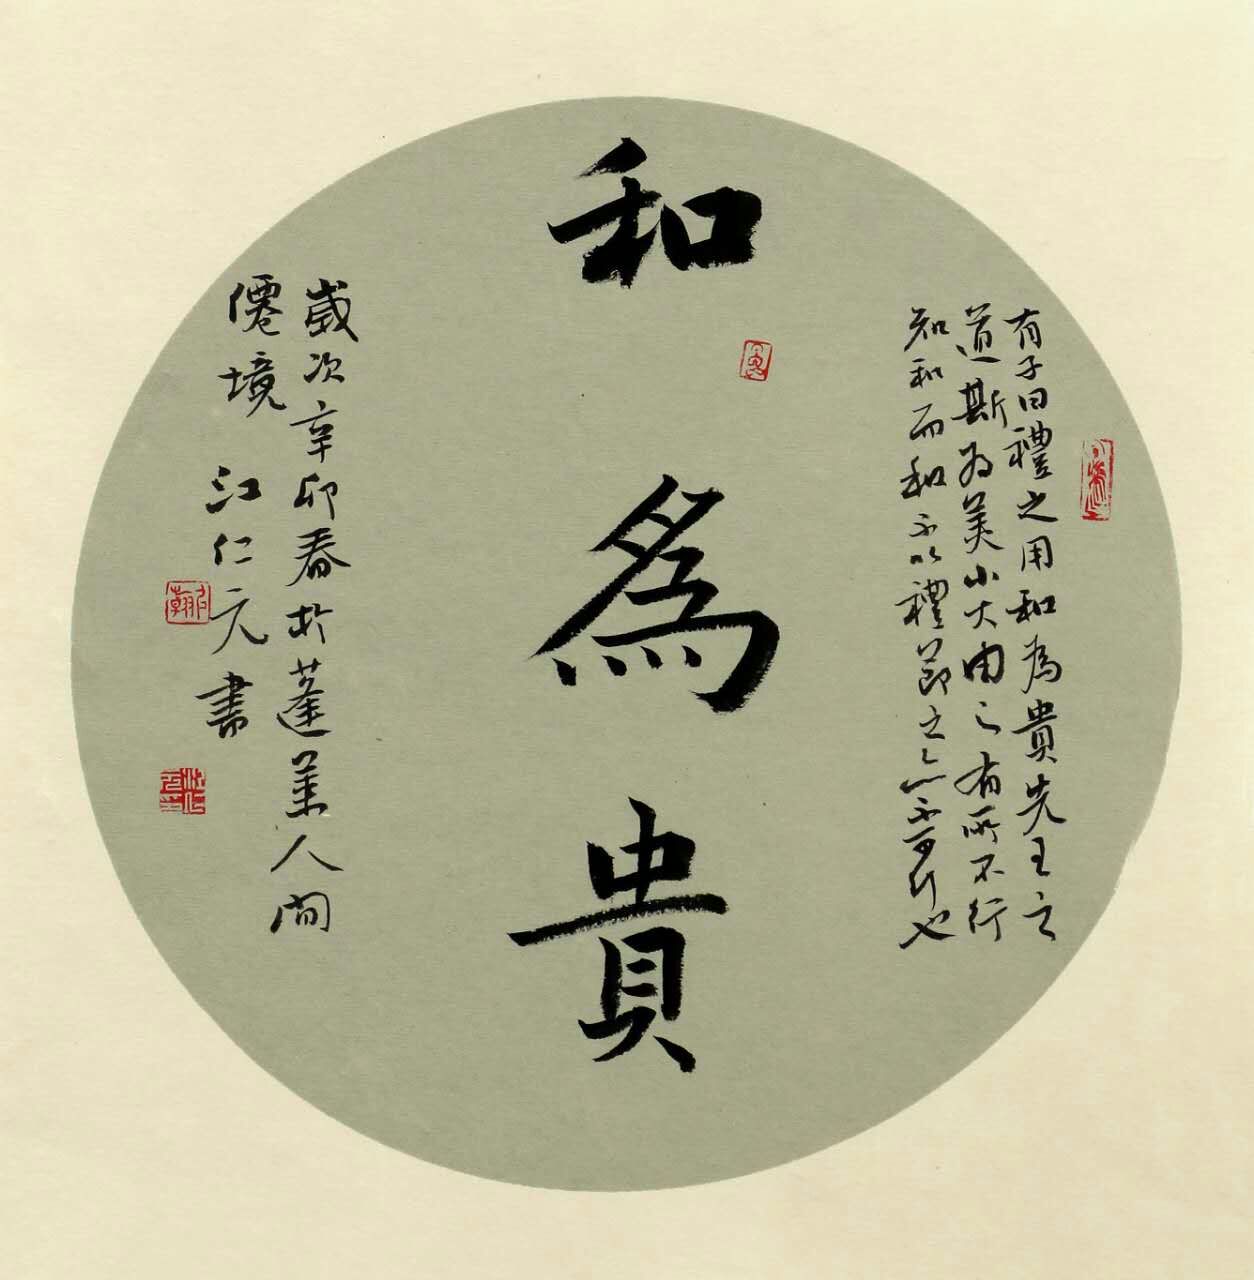 有子曰禮之用和為貴先王之
道斯为美小大由之有所不行
知和而和不以禮節之亦不可行也
和為貴
歲次辛卯春於蓬萊人間
僊境 江仁元書